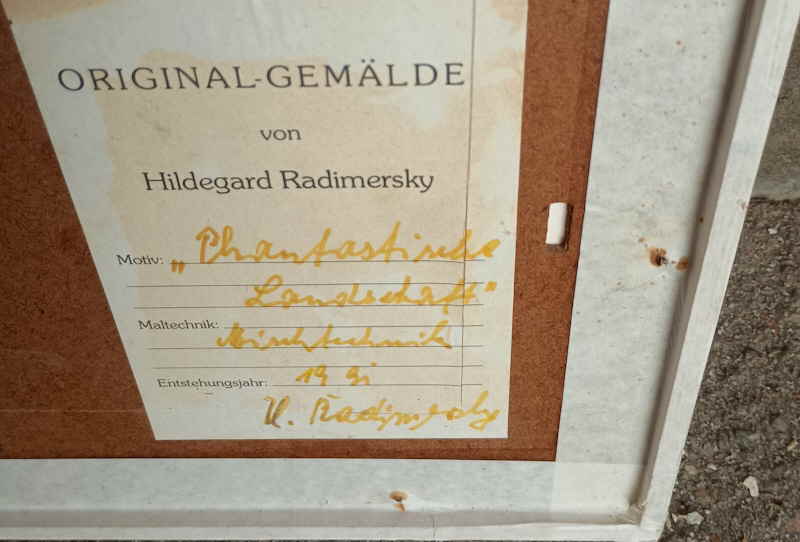 ORIGINAL-GEMÄLDE
von
Hildegard Radimersky
Motiv: „Phantastische
Landschaft"
Maltechnik: Mischtechnik
Entstehungsjahr: 19
H. Radimersky